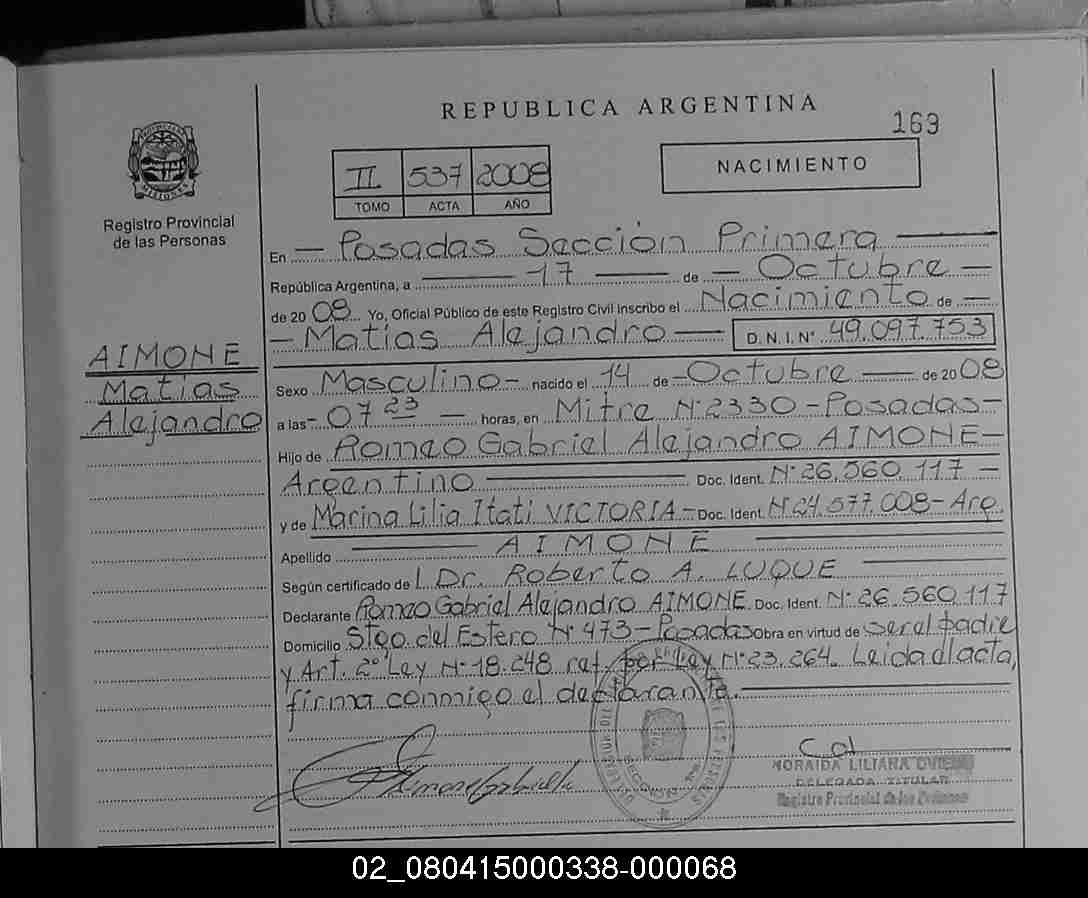 REPUBLICA ARGENTINA
169
PROVINCIA DE MISIONES
Registro Provincial
de las Personas
II 537 2008
TOMO ACTA AÑO
NACIMIENTO
En — Posadas Sección Primera —
República Argentina, a — 17 — de — Octubre —
de 2008 Yo, Oficial Público de este Registro Civil inscribo el Nacimiento de —
— Matías Alejandro — D.N.I.N° 49.097.753
AIMONE
Matías
Alejandro
Sexo Masculino — nacido el 14 de — Octubre — de 2008
a las — 07 23 — horas, en Mitre N° 2330 — Posadas —
Hijo de Romeo Gabriel Alejandro AIMONE —
Argentino — Doc. Ident. N° 26.560.117 —
y de Marina Lilia Itati VICTORIA — Doc. Ident. N° 24.577.008 — Arg.
Apellido — AIMONE —
Según certificado de l Dr. Roberto A. LUQUE —
Declarante Romeo Gabriel Alejandro AIMONE Doc. Ident. N° 26.560.117
Domicilio Stgo del Estero N° 473 — Posadas Obra en virtud de ser el padre
y Art. 2° Ley N° 18.248 ref. por Ley N° 23.264. Leida el acta,
firma conmigo el declarante. —
Aimone Gabriel
NORAIDA LILIANA
DELEGADA TITULAR
Registro Provincial de las Personas
02_080415000338-000068